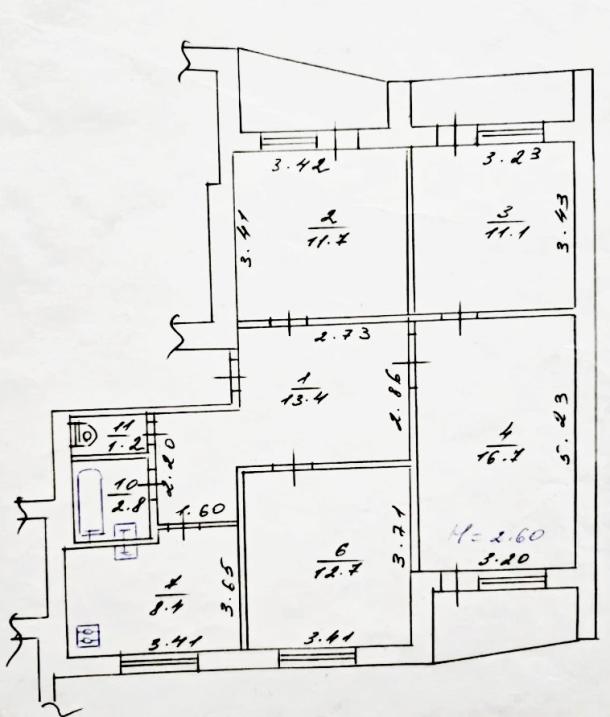 3.42
3.23
3.41
2
11.7
3
11.1
3.43
2.73
1
13.4
2.86
4
16.7
5.23
11
1.2
10
2.8
2.20
1.60
6
12.7
3.71
H=2.60
3.20
7
8.4
3.65
3.41
3.41